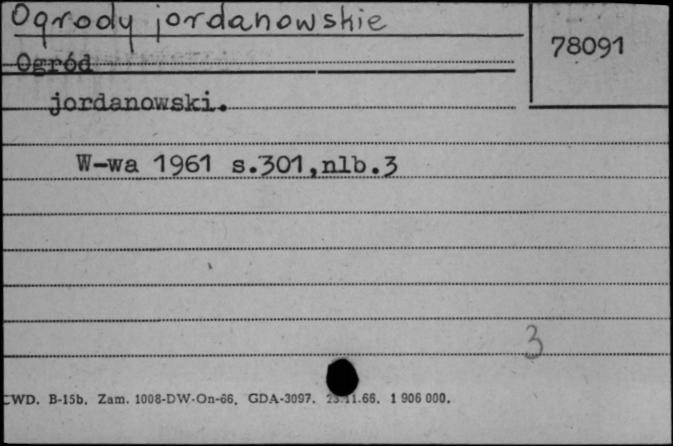 Ogrody jordanowskie
78091
Ogród
jordanowski.
W-wa 1961 s.301,nlb.3
3
CWD. B-15b. Zam. 1008-DW-On-66. GDA-3097. 11.66. 1 906 000.